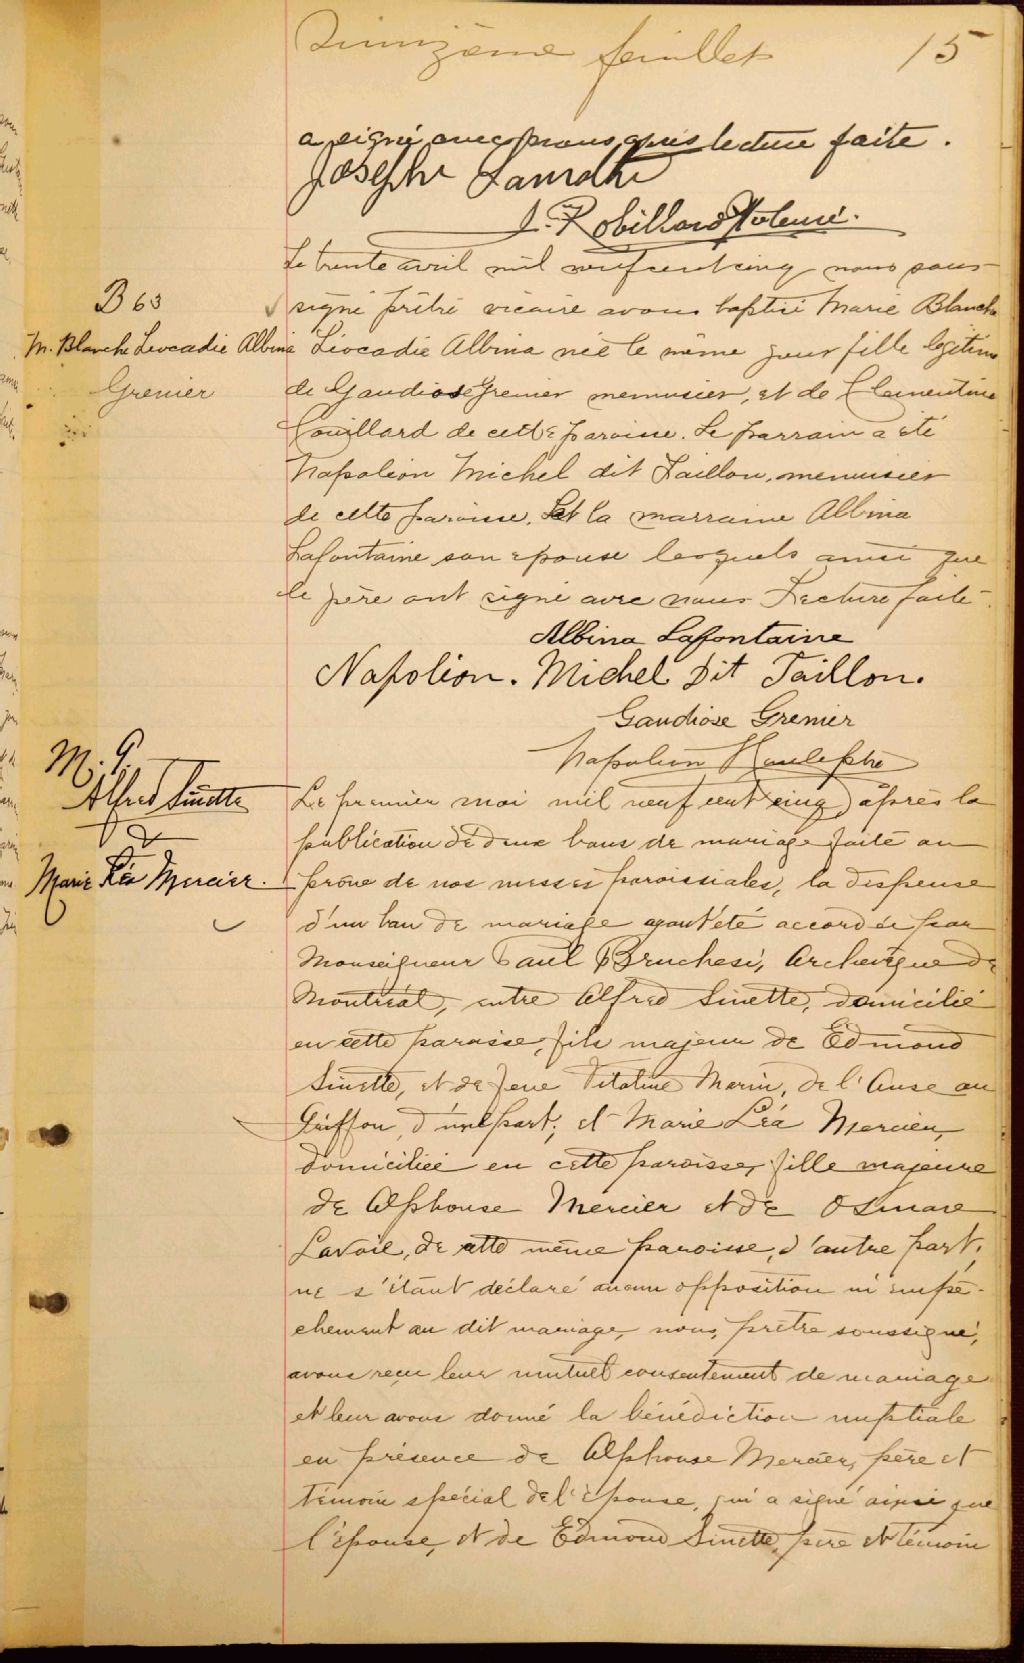 Quinzième feuillet 15
a signé avec nous après lecture faite.
Joseph
J. Robillard Ptre curé.
Le trente avril mil neuf cent cinq nous sous-
B 63
signé prêtre vicaire avons baptisé Marie Blanche
M. Blanche Léocadie Albina
Léocadie Albina née le même jour fille légitime
Grenier
de Gaudiose Grenier menuisier, et de Clementine
Couillard de cette paroisse. Le parrain a été
Napoléon Michel dit Taillon, menuisier
de cette paroisse. Et la marraine Albina
Lafontaine son épouse lesquels ainsi que
le père ont signé avec nous. Lecture faite.
Albina Lafontaine
Napoléon. Michel Dit Taillon.
Gaudiose Grenier
Napoléon
M. 9.
Alfred Sinette
&
Marie Léa Mercier.
Le premier mai mil neuf cent cinq, après la
publication de deux bans de mariage faite au
prône de nos messes paroissiales, la dispense
d'un ban de mariage ayant été accordée par
Monseigneur Paul Bruchesi, Archevêque de
Montréal, entre Alfred Sinette, domicilié
en cette paroisse, fils majeur de Edmond
Sinette, et de feue Vitaline Marin, de l'Anse au
Griffon, d'une part; et Marie Léa Mercier,
domiciliée en cette paroisse, fille majeure
de Alphonse Mercier et de
Lavoie, de cette même paroisse, d'autre part,
ne s'étant déclaré aucun opposition ni empê-
chement au dit mariage, nous, prêtre soussigné,
avons reçu leur mutuel consentement de mariage
et leur avons donné la bénédiction nuptiale
en présence de Alphonse Mercier, père et
témoin spécial de l'épouse, qui a signé ainsi que
l'épouse, et de Edmond Sinette, père et témoin